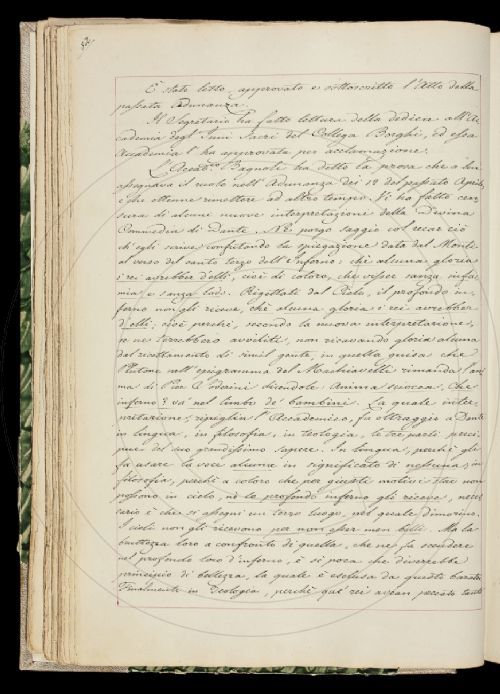 82.
È stato letto, approvato e sottoscritto l'Atto della
passata Adunanza.
Il Segretario ha fatto lettura della dedica all'Ac-
cademia degl'Inni Sacri del Collega Borghi, ed essa
Accademia l'ha approvata per acclamazione.
L'Accad.co Bagnoli ha detto la prosa che a lui
assegnava il ruolo nell'Adunanza dei 12 del passato Aprile,
e che ottenne rimettere ad altro tempo. Vi ha fatto cen-
sura di alcune nuove interpretazione della Divina
Commedia di Dante. Ne porgo saggio col recar ciò
ch'egli scrive confutando la spiegazione data dal Monti
al verso del canto terzo dell'Inferno: chè alcuna gloria
i rei avrebber d'elli, cioè di coloro, che visser senza infa-
mia e sanza lodo. Rigettati dal Cielo, il profondo in-
ferno non gli riceve, chè alcuna gloria i rei avrebber
d'elli, cioè perchè, secondo la nuova interpretazione,
se ne terrebbero avviliti, non ricavando gloria alcuna
dal ricettamento di simil gente, in quella guisa che
Plutone nell'epigramma del Machiavelli rimanda l'ani-
ma di Pier Soderini dicendole: Anima sciocca, Che
inferno? va' nel limbo de' bambini. La quale inter-
pretazione, ripiglia l'Accademico, fa oltraggio a Dante
in lingua, in filosofia, in teologia, le tre parti preci-
pue del suo grandissimo sapere. In lingua, perchè gli
fa usare la voce alcuna in significato di nessuna; in
filosofia, perchè a coloro che per questi motivi stare non
possono in cielo, nè lo profondo inferno gli riceve, neces-
sario è che si assegni un terzo luogo, nel quale dimorino.
I cieli non gli ricevono per non esser men belli. Ma la
bruttezza loro a confronto di quella, che ne fa scendere
nel profondo loro d'inferno, è sì poca che diverrebbe
principio di bellezza, la quale è esclusa da questo baratro.
Finalmente in Teologia, perchè que' rei avean peccato tanto